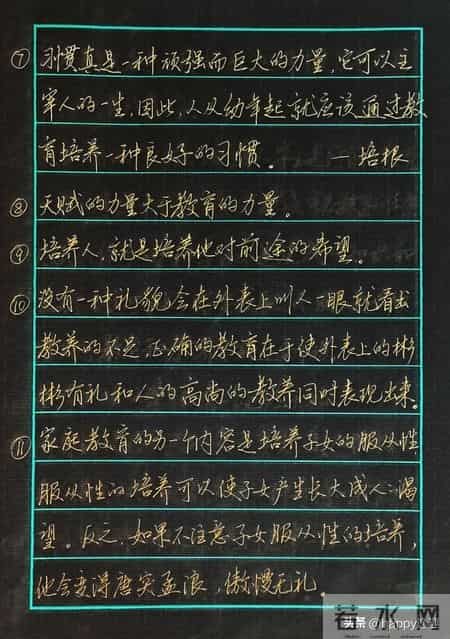 ⑦ 习惯真是一种顽强而巨大的力量,它可以主
宰人的一生,因此,人从幼年起就应该通过教
育培养一种良好的习惯。 —培根
⑧ 天赋的力量大于教育的力量。
⑨ 培养人,就是培养他对前途的希望。
⑩ 没有一种礼貌会在外表上叫人一眼就看出
教养的不足,正确的教育在于使外表上的彬
彬有礼和人的高尚的教养同时表现出来。
⑪ 家庭教育的另一个内容是培养子女的服从性
服从性的培养可以使子女产生长大成人之渴
望。反之,如果不注意子女服从性的培养,
他会变得唐突孟浪,傲慢无礼。
头条 @happy
若水网